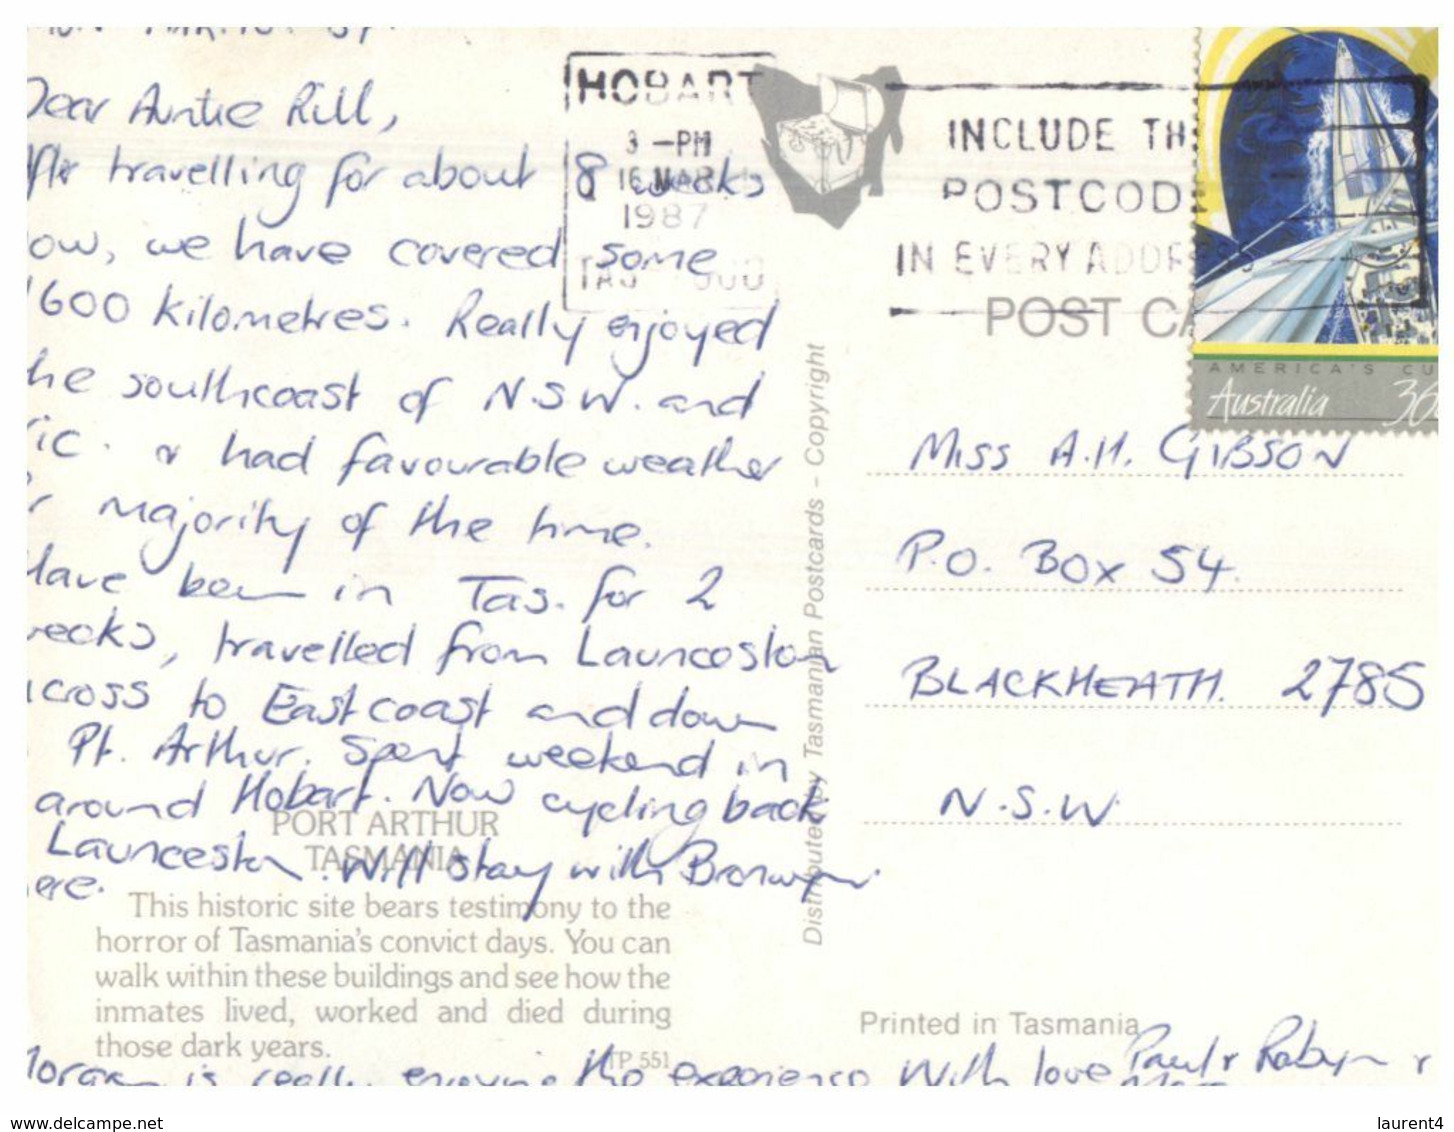 Dear Auntie Rill,
After travelling for about 8 weeks
ow, we have covered some
1600 kilometres. Really enjoyed
he southcoast of N.S.W. and
ic. & had favourable weather
r majority of the time.
Have been in Tas. for 2
eeks, travelled from Launceston
across to East coast and down
Pt. Arthur. Spent weekend in
around Hobart. Now cycling back
Launceston. Will stay with Bronwyn
ere.
PORT ARTHUR
TASMANIA
This historic site bears testimony to the
horror of Tasmania's convict days. You can
walk within these buildings and see how the
inmates lived, worked and died during
those dark years.
TP 551
Morgan is really enjoying the experience With love Paul & Robyn &
HOBART
3 -PM
16 MAR
1987
TAS
INCLUDE TH
POSTCODE
IN EVERY ADDRESS
POST CA
AMERICA'S CU
Australia 36
Miss A.H. GIBSON
P.O. Box 54.
BLACKHEATH. 2785
N.S.W.
Distributed by Tasmanian Postcards – Copyright
Printed in Tasmania
www.delcampe.net
laurent4